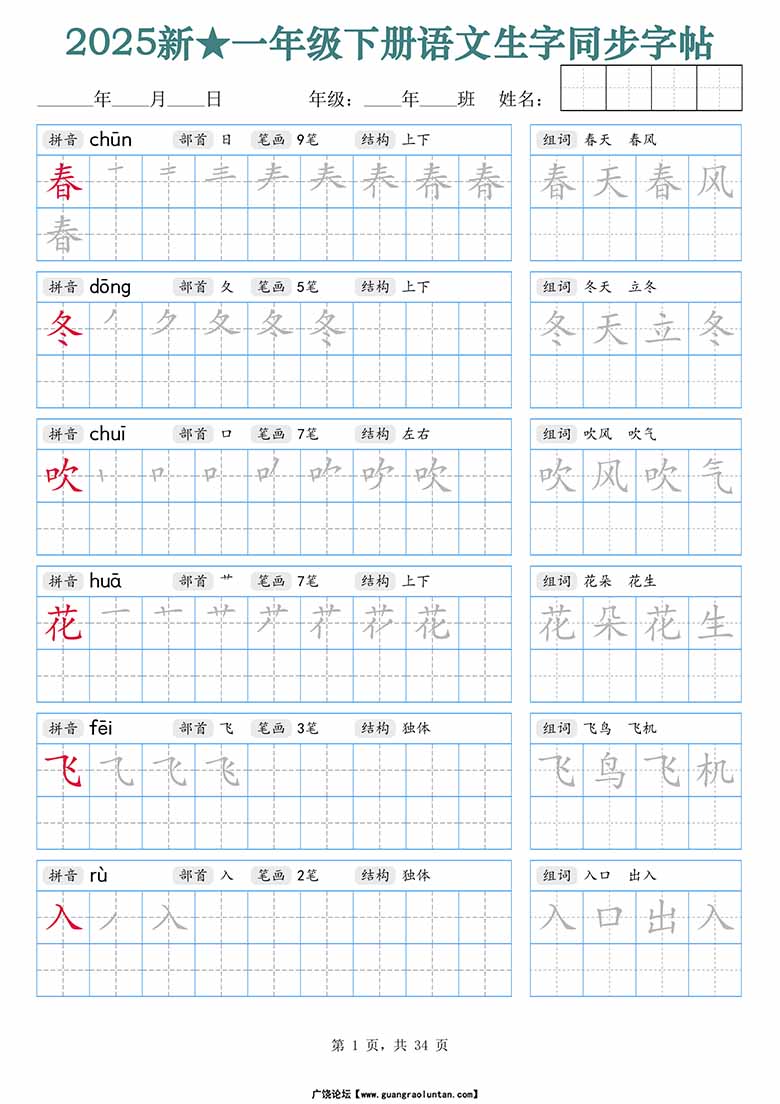 2025新★一年级下册语文生字同步字帖
______年____月____日 年级：____年____班 姓名：
拼音 chūn 部首 日 笔画 9笔 结构 上下 组词 春天 春风
春 春 天 春 风
春
拼音 dōng 部首 夂 笔画 5笔 结构 上下 组词 冬天 立冬
冬 冬 天 立 冬
拼音 chuī 部首 口 笔画 7笔 结构 左右 组词 吹风 吹气
吹 吹 吹 风 吹 气
拼音 huā 部首 艹 笔画 7笔 结构 上下 组词 花朵 花生
花 花 花 朵 花 生
拼音 fēi 部首 飞 笔画 3笔 结构 独体 组词 飞鸟 飞机
飞 飞 飞 鸟 飞 机
拼音 rù 部首 入 笔画 2笔 结构 独体 组词 入口 出入
入 入 入 口 出 入
第 1 页，共 34 页
广饶论坛【www.guangraoluntan.com】